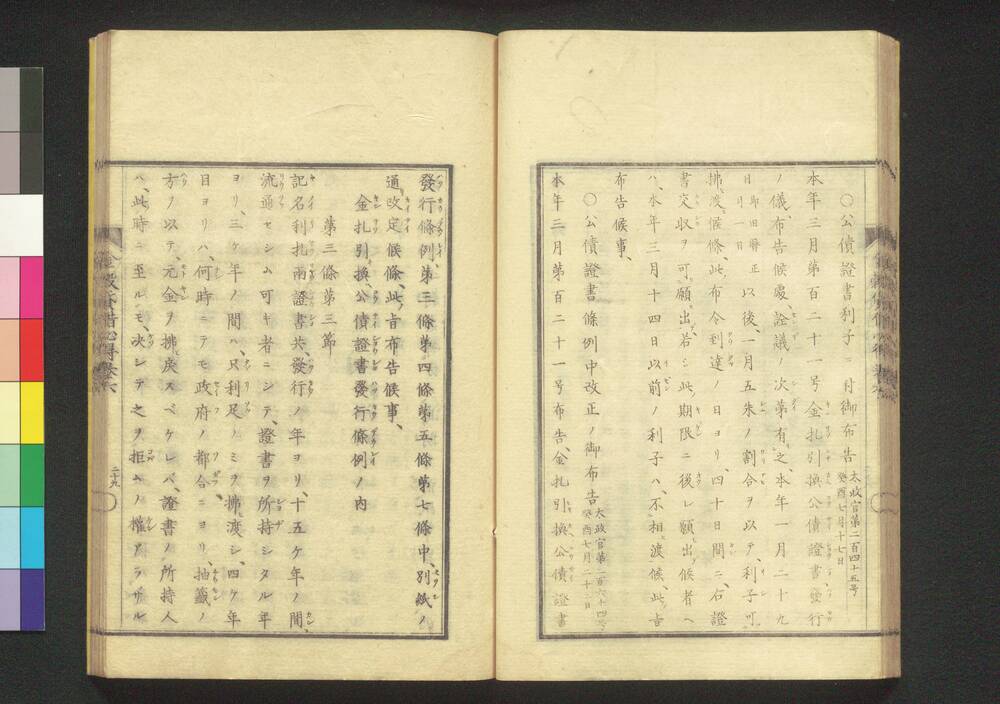 ○公債證書利子ニ付御布告 太政官第二百四十五号 癸酉七月十七日
本年三月第百二十一号金札引換公債證書發行
ノ儀、布告候處、詮議ノ次第有之、本年一月二十九
日即旧暦正月一日以後、一月五朱ノ割合ヲ以テ、利子可
拂渡候條、此布令到達ノ日ヨリ、四十日間ニ、右證
書交収ヲ可願出、若シ此期限ニ後レ願出ヅ候者ヘ
ハ、本年三月十四日以前ノ利子ハ、不相渡候、此旨
布告候事、
○公債證書條例中改正ノ御布告 太政官第二百六十四号 癸酉七月二十二日
本年三月第百二十一号布告、金札引換公債證書
發行條例、第三條第四條第五條第七條中、別紙ノ
通改定候條、此旨布告候事、
金札引換、公債證書發行條例ノ内
第三條第三節
記名利札兩證書共發行ノ年ヨリ、十五ケ年ノ間、
流通セシム可キ者ニシテ、證書ヲ所持シタル年
ヨリ、三ケ年ノ間ハ、只利足ノミヲ拂渡シ、四ケ年
目ヨリハ、何時ニテモ政府ノ都合ニヨリ、抽籤ノ
方ヲ以テ、元金ヲ拂戻スベケレバ、證書ノ所持人
ハ、此時ニ至ルモ、决シテ之ヲ拒ムノ權アラザル
二十九